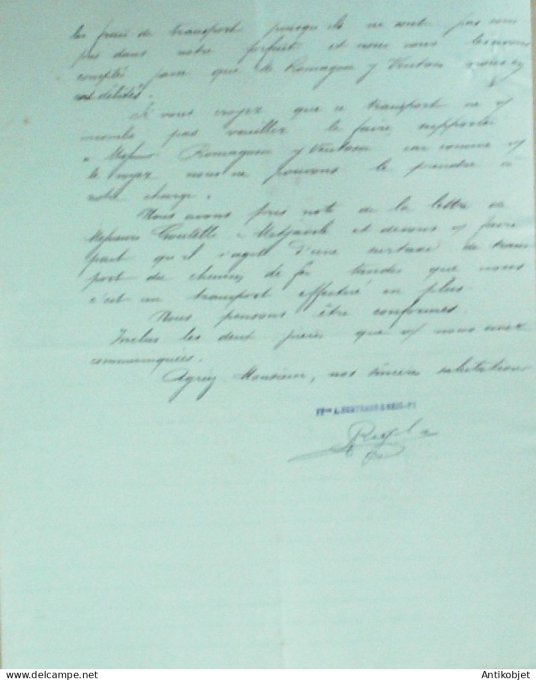 les frais de transport puisqu'ils ne sont pas com
pris dans notre forfait et nous nous
compte pour que de Romagosa y Ventosa nous en
ont débités.
Si vous croyez que ce transport ne v/
incombe pas veuillez le faire supporter
à Messieurs Romagosa y Ventosa car comme v/
le voyez nous ne pouvons le prendre à
notre charge.
Nous avons pris note de la lettre de
Messieurs & et devons v/ faire
part qu'il s'agit d'une surtaxe de trans
port du chemin de fer tandis que nous
c'est un transport effectué en plus.
Nous pensons être conformes.
Inclus les deux pièces que v/ nous avez
communiquées.
Agréez Monsieur, nos sincères salutations